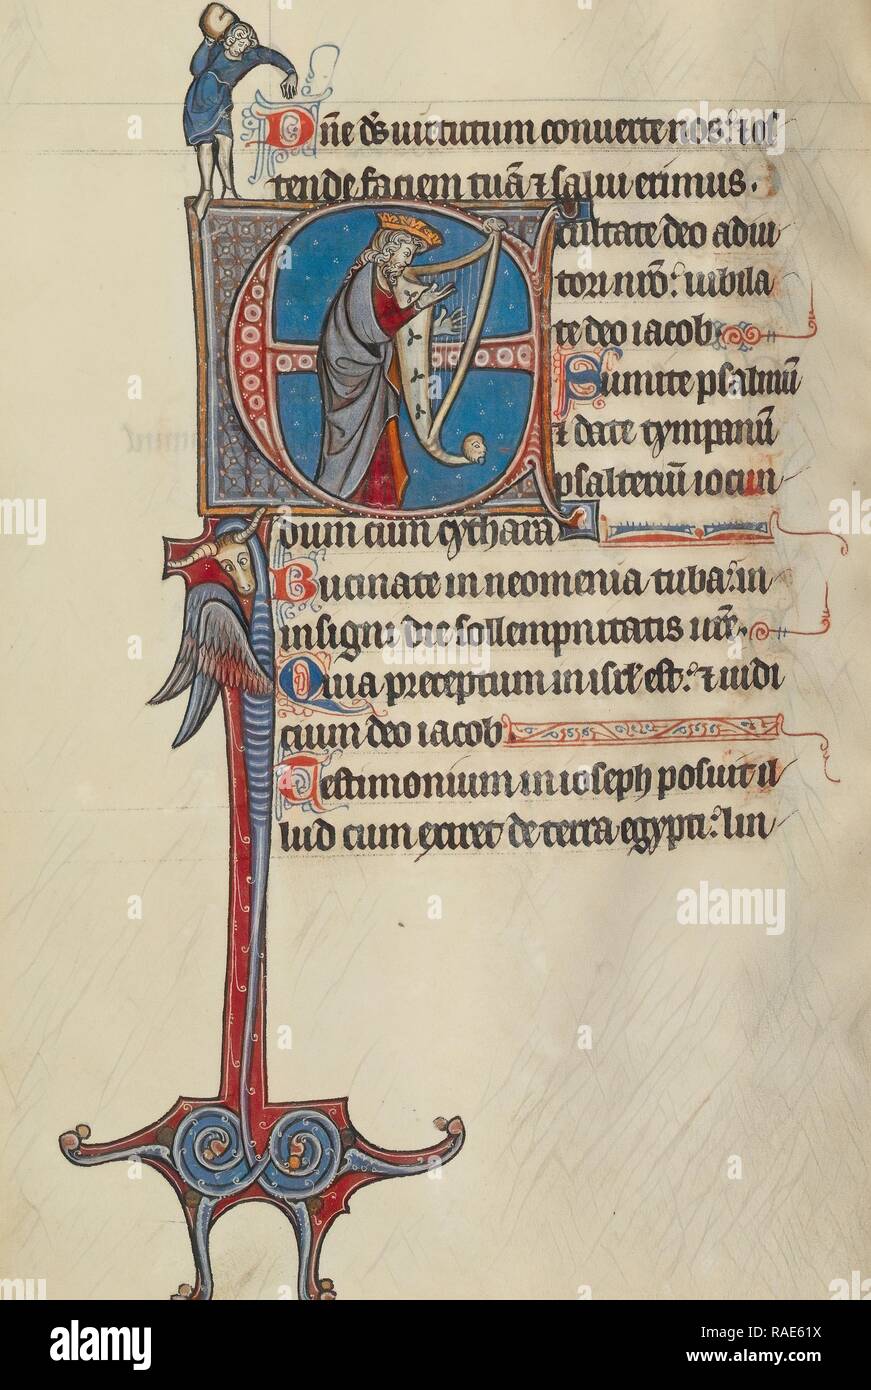 Dñe ds uirtutum conuerte nos: ⁊ os
tende faciem tuã ⁊ salui erimus.
Exultate deo adiu
tori nr̃o: iubila
te deo iacob.
Sumite psalmũ
⁊ date tympanũ
psalteriũ iocun
dum cum cythara
Bucinate in neomenia tuba: in
insigni die sollempnitatis ur̃e.
Quia preceptum in isrł est: ⁊ iudi
cium deo iacob.
Testimonium in ioseph posuit il
lud cum exiret de terra egypti: lin
alamy
alamy
Image ID: RAE61X
www.alamy.com